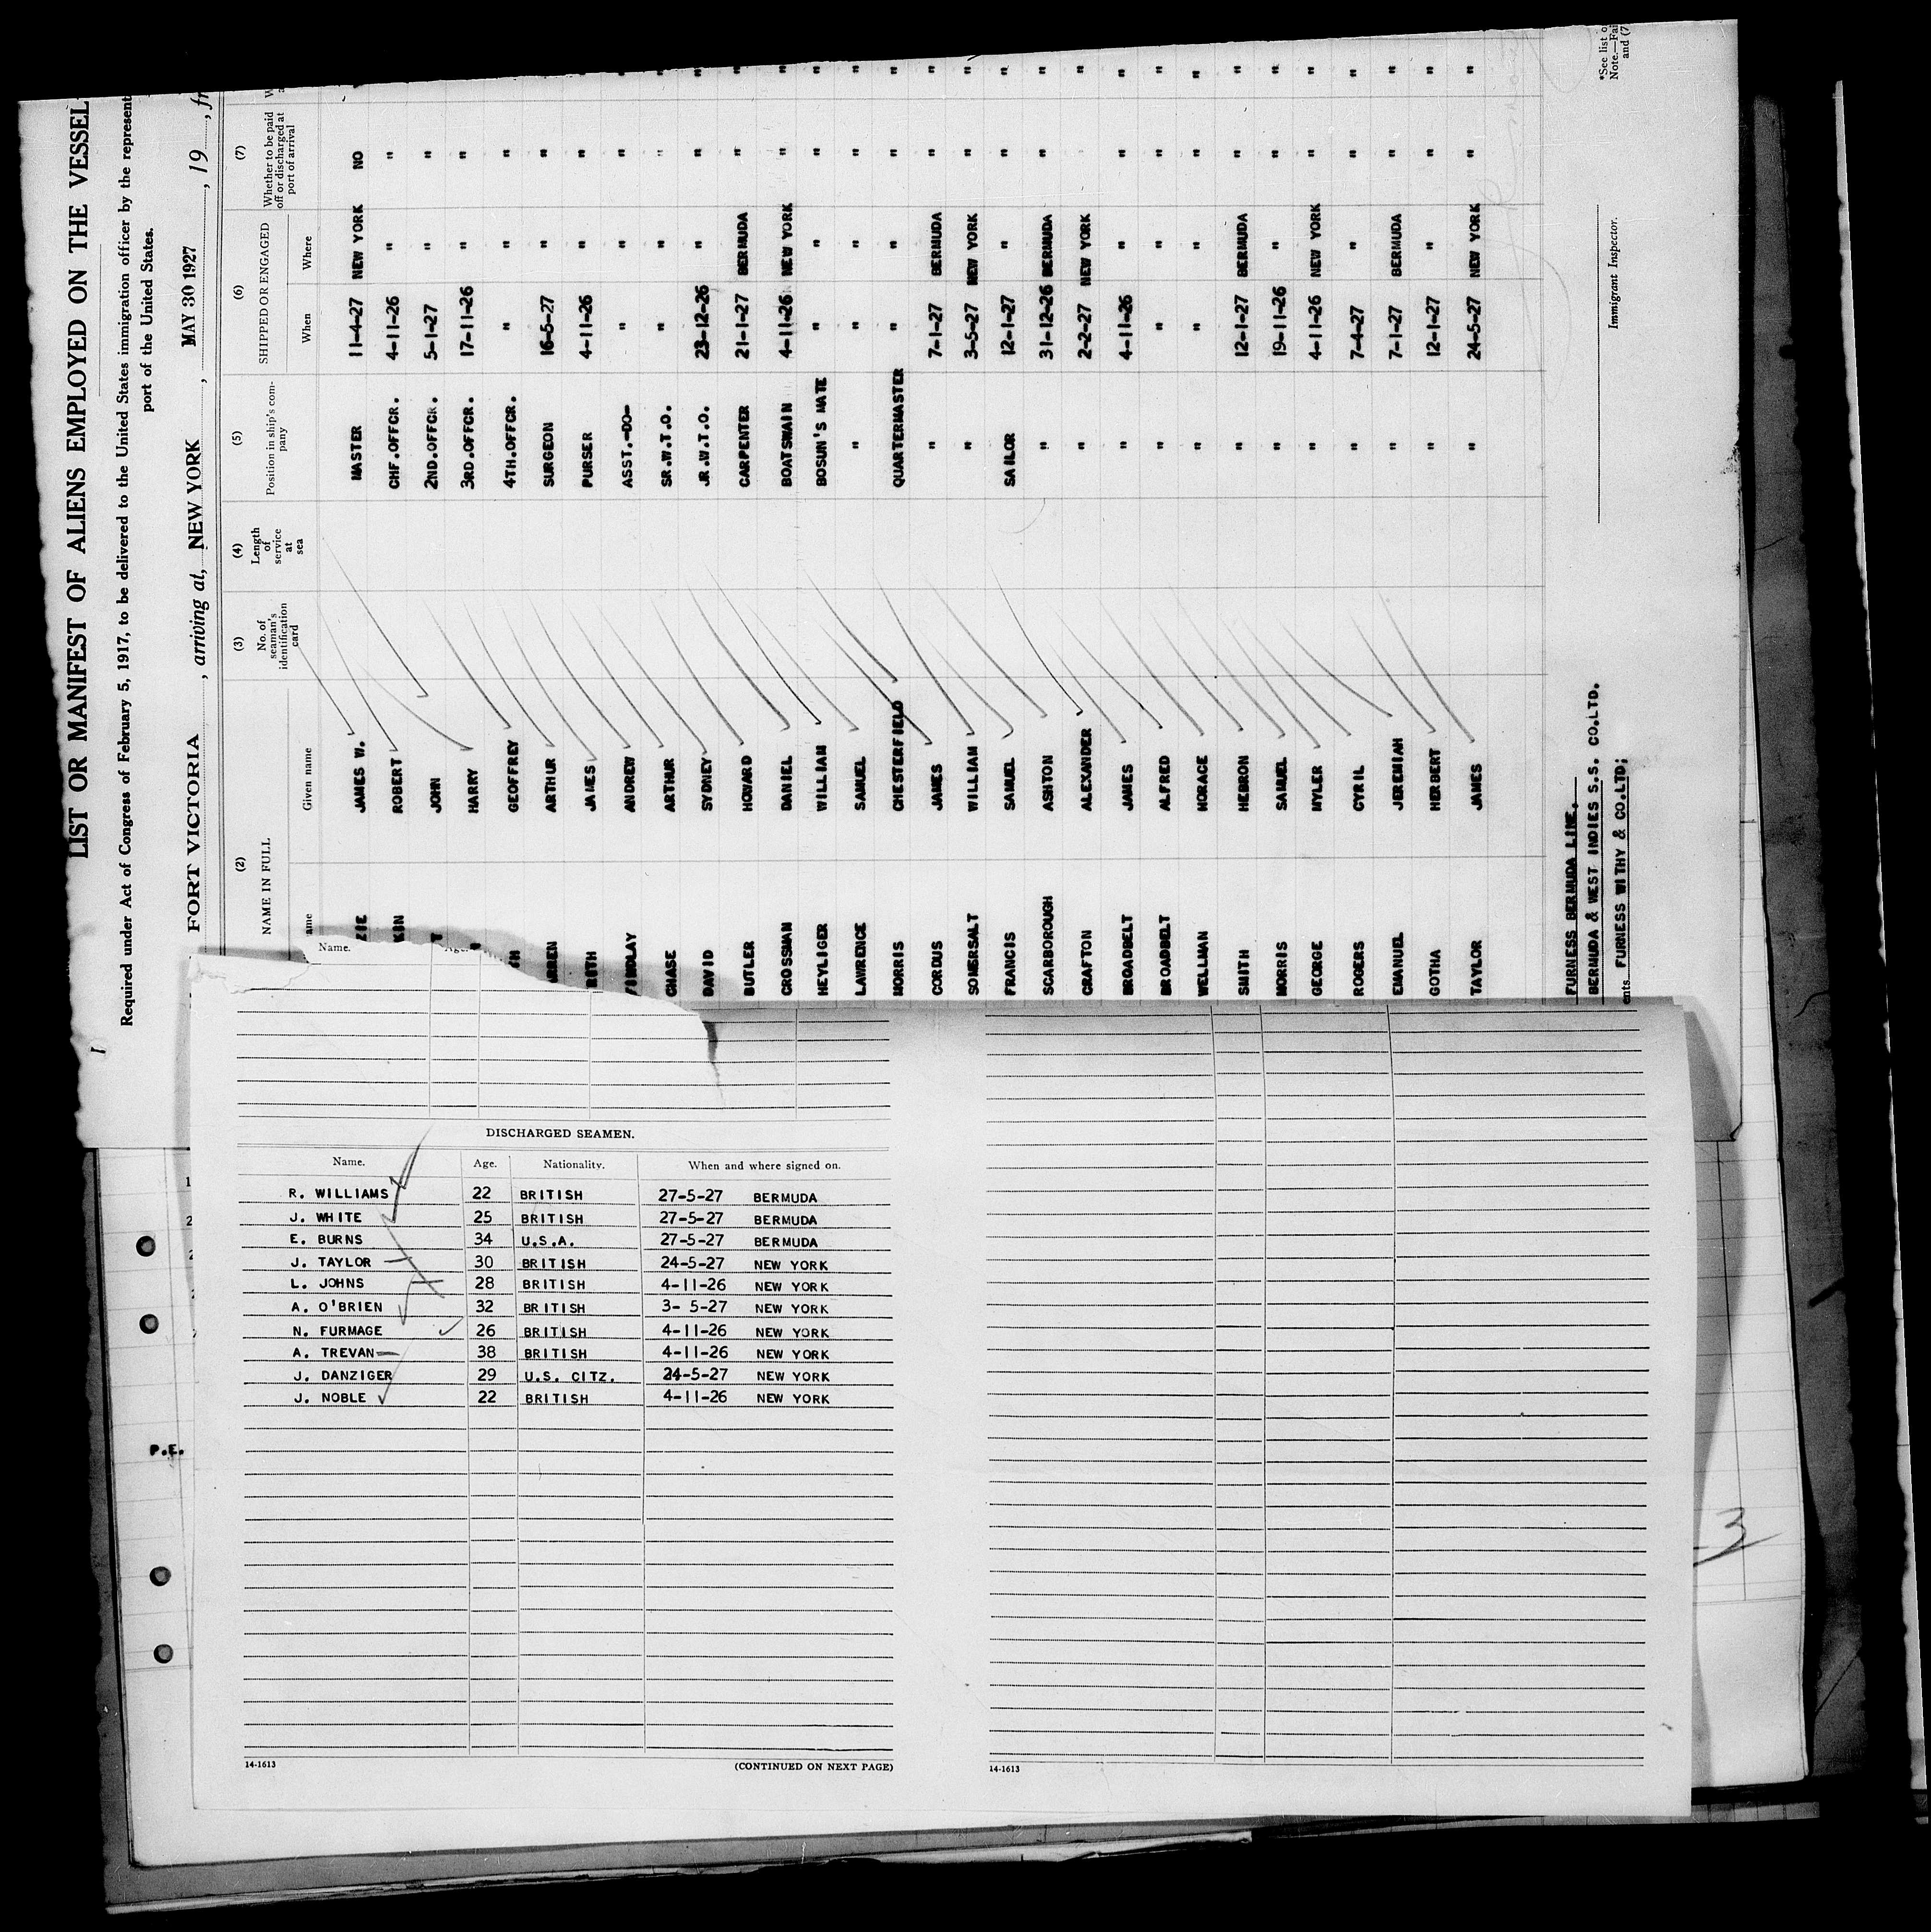 LIST OR MANIFEST OF ALIENS EMPLOYED ON THE VESSEL
Required under Act of Congress of February 5, 1917, to be delivered to the United States immigration officer by the represent
port of the United States.
FORT VICTORIA, arriving at, NEW YORK, MAY 30 1927, 19, fr
(2) (3) (4) (5) (6) (7)
NAME IN FULL No. of seaman's identification card Length of service at sea Position in ship's company SHIPPED OR ENGAGED Whether to be paid off or discharged at port of arrival
ame Given name When Where
ZIE JAMES W. MASTER 11-4-27 NEW YORK NO
KIN ROBERT CHF.OFFCR. 4-11-26 " " "
T JOHN 2ND.OFFCR. 5-1-27 " " "
HARRY 3RD.OFFCR. 17-11-26 " " "
CH GEOFFREY 4TH.OFFCR. " " " "
RREN ARTHUR SURGEON 16-5-27 " " "
BITH JAMES PURSER 4-11-26 " " "
FINDLAY ANDREW ASST.-DO- " " " "
CHASE ARTHUR SR.W.T.O. " " " "
DAVID SYDNEY JR.W.T.O. 23-12-26 " " "
BUTLER HOWARD CARPENTER 21-1-27 BERMUDA " "
CROSSMAN DANIEL BOATSWAIN 4-11-26 NEW YORK " "
HEYLIGER WILLIAM BOSUN'S MATE " " " "
LAWRENCE SAMUEL " " " " "
MORRIS CHESTERFIELD QUARTERMASTER " " " "
CORDUS JAMES " 7-1-27 BERMUDA " "
SOMERSALT WILLIAM " 3-5-27 NEW YORK " "
FRANCIS SAMUEL SAILOR 12-1-27 " " "
SCARBOROUGH ASHTON " 31-12-26 BERMUDA " "
CRAFTON ALEXANDER " 2-2-27 NEW YORK "
BROADBELT JAMES " 4-11-26 " " "
BROADBELT ALFRED " " " " "
WELLMAN HORACE " " " " "
SMITH HEBRON " 12-1-27 BERMUDA " "
MORRIS SAMUEL " 19-11-26 " " "
GEORGE MYLER " 4-11-26 NEW YORK " "
ROGERS CYRIL " 7-4-27 " " "
EMANUEL JEREMIAH " 7-1-27 BERMUDA " "
GOTHA HERBERT " 12-1-27 " " "
TAYLOR JAMES " 24-5-27 NEW YORK " "
FURNESS BERMUDA LINE.
BERMUDA & WEST INDIES S.S. CO.LTD.
ents FURNESS WITHY & CO.LTD;
Immigrant Inspector.
*See list o
Note.—Fai
and (7
Name. Age.
DISCHARGED SEAMEN.
Name. Age. Nationality. When and where signed on.
R. WILLIAMS 22 BRITISH 27-5-27 BERMUDA
J. WHITE 25 BRITISH 27-5-27 BERMUDA
E. BURNS 34 U.S.A. 27-5-27 BERMUDA
J. TAYLOR 30 BRITISH 24-5-27 NEW YORK
L. JOHNS 28 BRITISH 4-11-26 NEW YORK
A. O'BRIEN 32 BRITISH 3- 5-27 NEW YORK
N. FURMAGE 26 BRITISH 4-11-26 NEW YORK
A. TREVAN 38 BRITISH 4-11-26 NEW YORK
J. DANZIGER 29 U.S. CITZ. 24-5-27 NEW YORK
J. NOBLE 22 BRITISH 4-11-26 NEW YORK
P.E.
3
14-1613 (CONTINUED ON NEXT PAGE)
14-1613